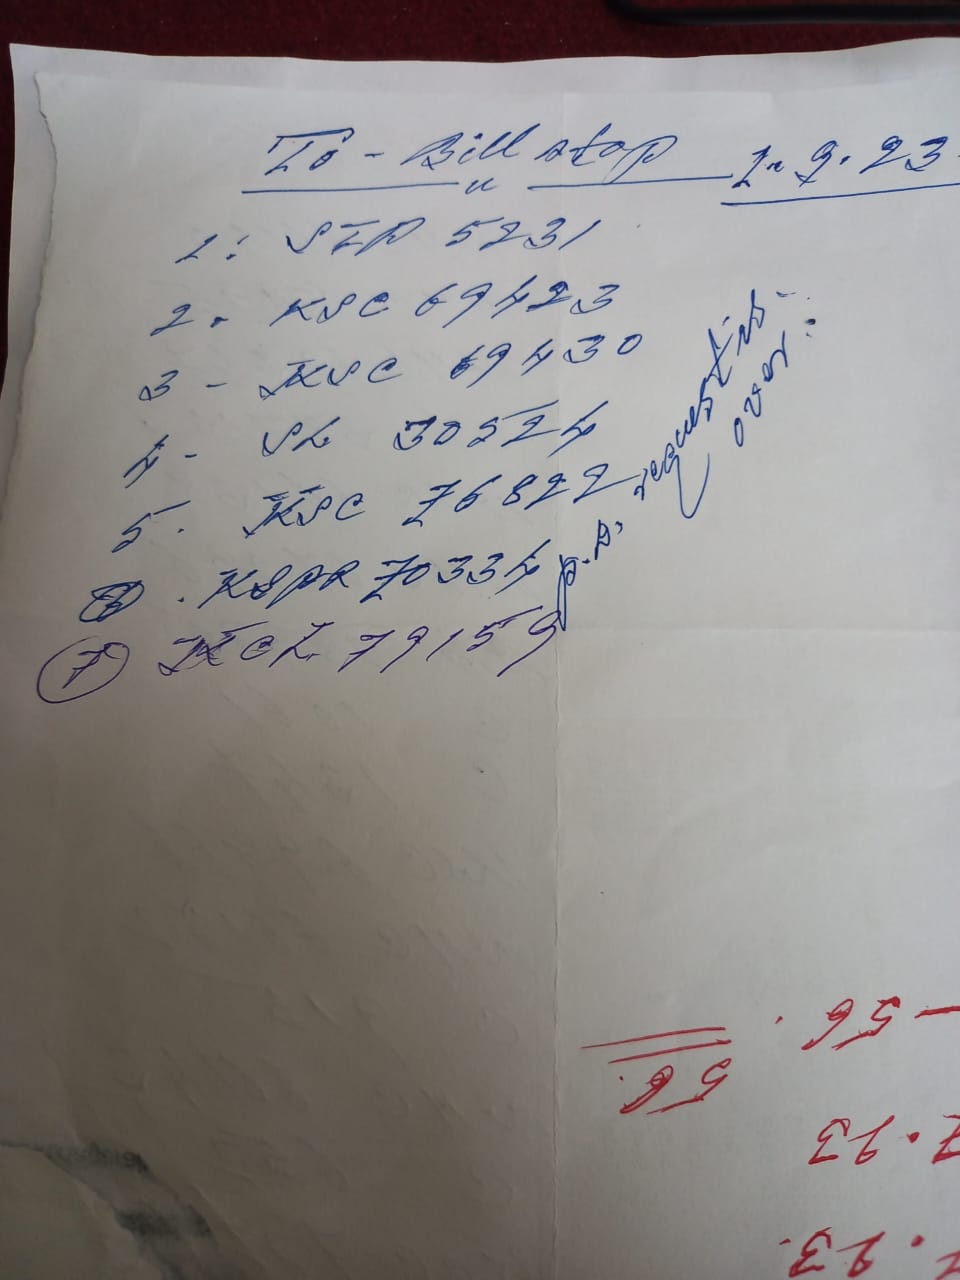 To - Bill stop 1.9.23
1: SIP 5231
2. KSC 69423
3 - KSC 69430
4 - SL 30524
5. KSC 76822
6. KSPR 70334
7 KCL 79159
p.s. request is over.
- 56.
56.
7.23
7.23.